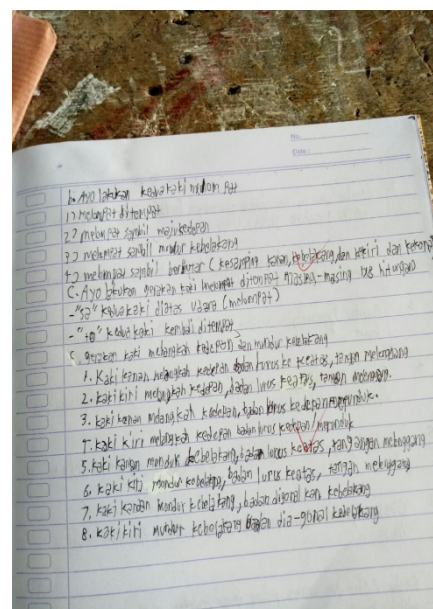 No.
Date:
b. Ayo lakukan kedua kaki melompat
1) melompat ditempat
2) melompat sambil majukedepan
3) melompat sambil mundur kebelakang
4) melompat sambil berputar (kesamping kanan, kebelakang, dan kekiri dan
C. Ayo lakukan gerakan kaki melompat ditempat masing-masing 1x8 hitungan)
-"sa" kedua kaki diatas udara (melompat)
-"tu" kedua kaki kembali ditempat
5. gerakan kaki melangkah kedepan dan mundur kebelakang
1. kaki kanan melangkah kedepan badan lurus ke keatas, tangan
2. kaki kiri melangkah kedepan, badan lurus keatas, tangan
3. kaki kanan melangkah kedepan, badan lurus kedepan
4. kaki kiri melangkah kedepan badan lurus kedepan
5. kaki kanan kebelakang, badan lurus keatas,
6. kaki kiri mundur badan lurus keatas, tangan
7. kaki mundur kebelakang, badan kebelakang
8. kaki kiri mundur kebelakang badan dia-gonal kebelakang